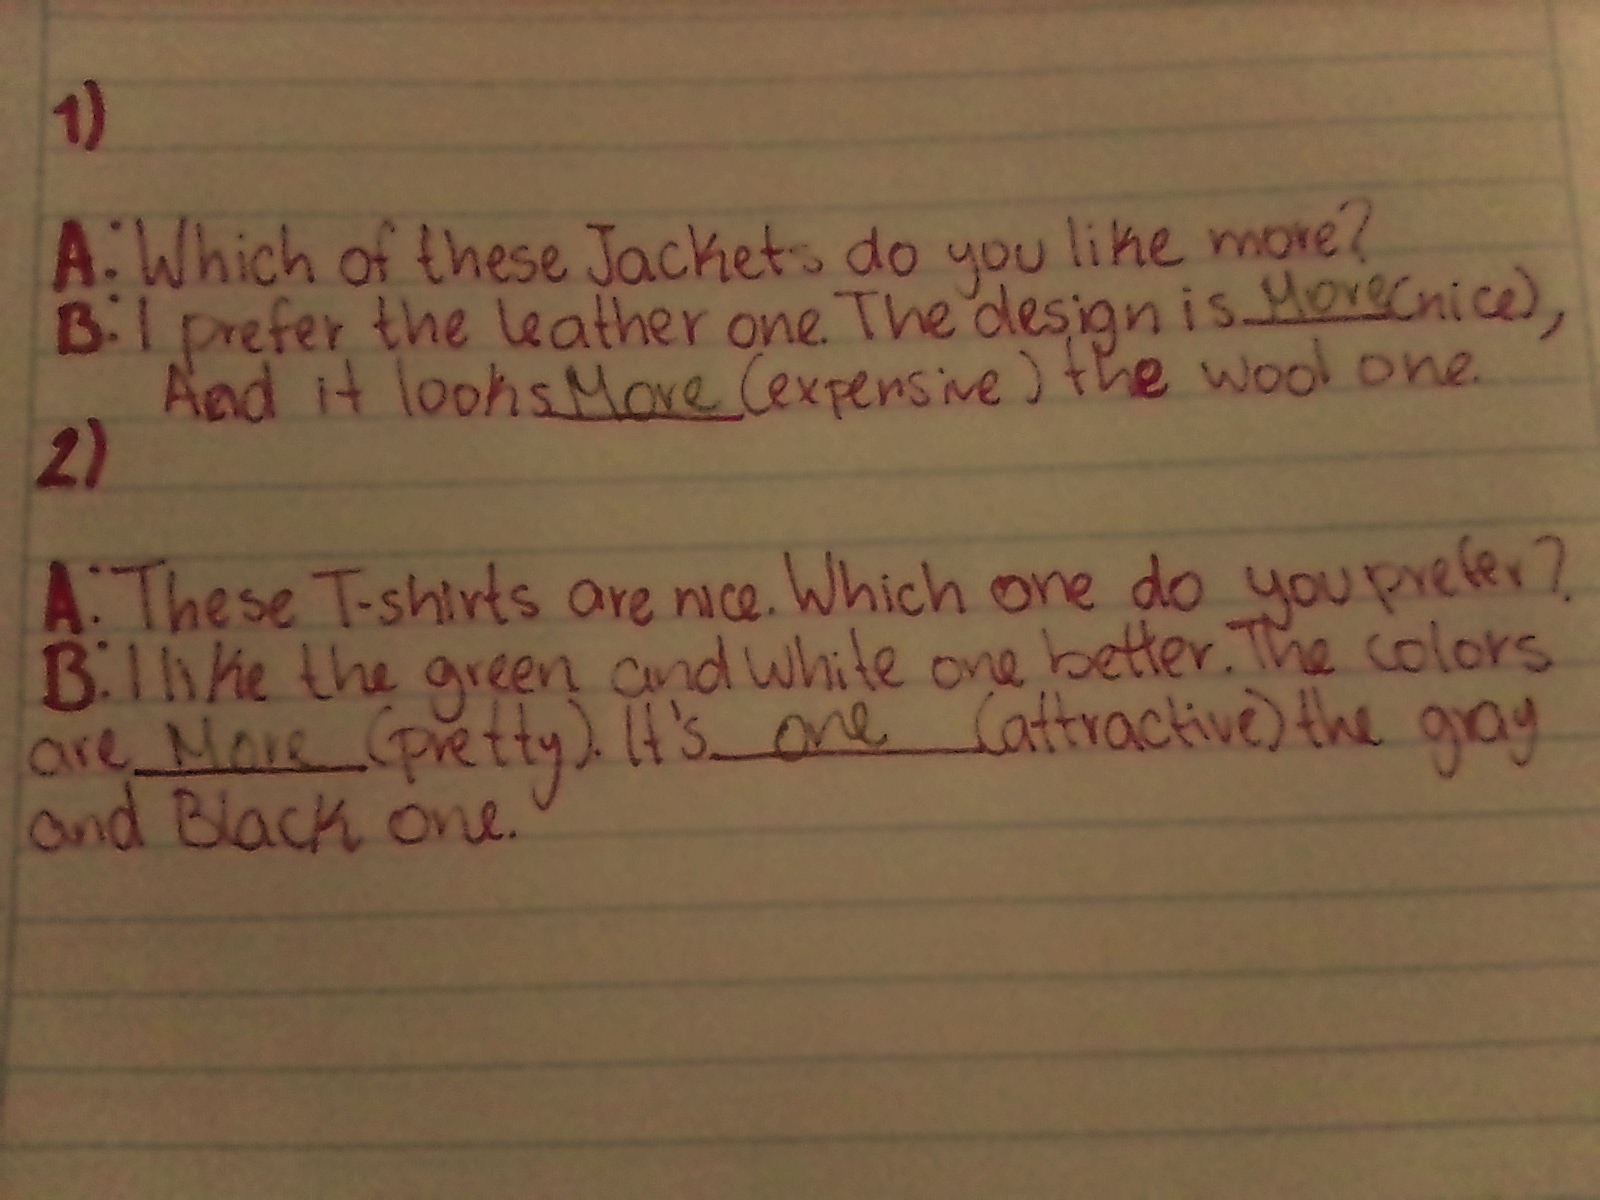 1)
A: Which of these Jackets do you like more?
B: I prefer the leather one. The design is More (nice),
And it looks More (expensive) the wool one.
2)
A: These T-shirts are nice. Which one do you prefer?
B: I like the green and white one better. The colors
are More (pretty). It's one (attractive) the gray
and Black one.